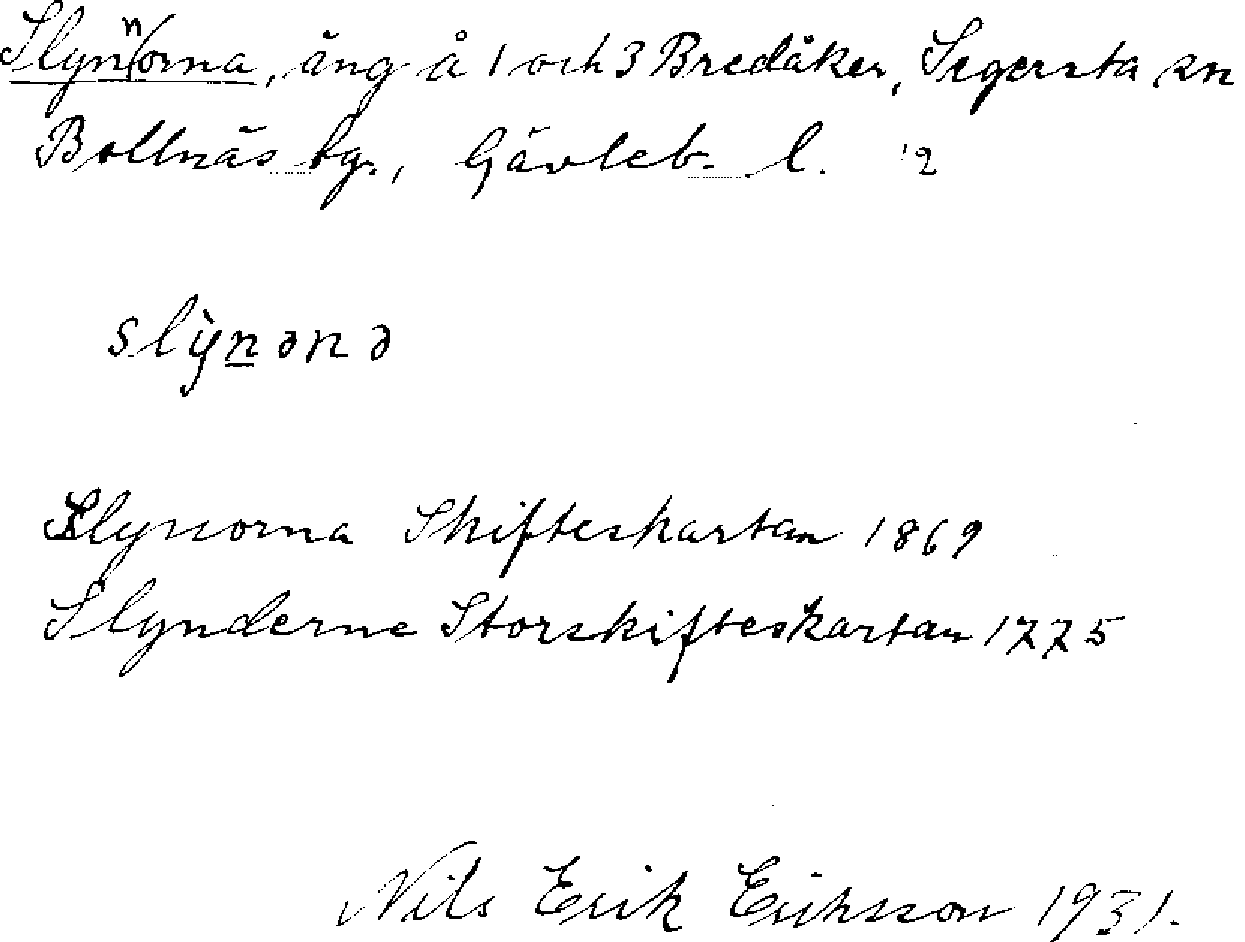 Slynnorna, äng å 1 och 3 Bredåker, Segersta sn
Bollnäs tg., Gävleb. l. 2
sly̖n̲ənə
Slynorna Skifteskartan 1869
Slynderne Storskifteskartan 1775
Nils Erik Eriksson 1931.